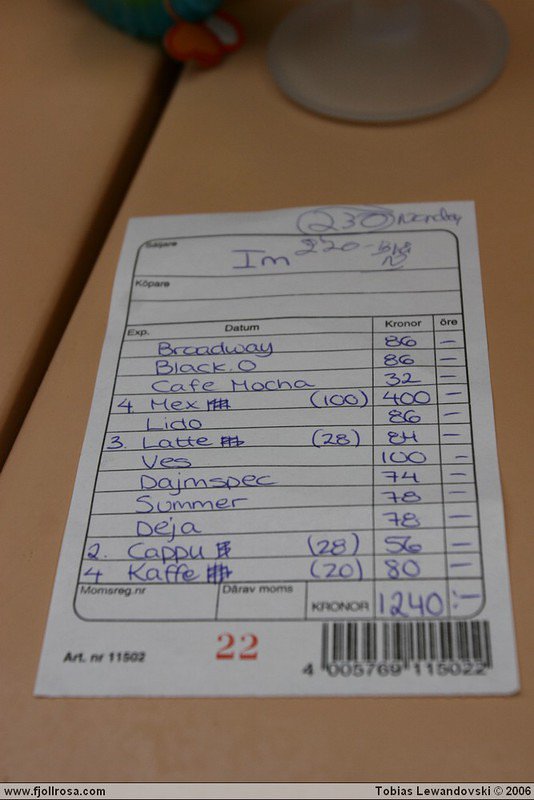 230
Säljare
Im 220-
Köpare
Exp. Datum Kronor öre
Broadway 86 —
Black.O 86 —
Cafe Mocha 32 —
4 Mex (100) 400 —
Lido 86 —
3. Latte (28) 84 —
Ves 100 —
Dajmspec 74 —
Summer 78 —
Deja 78 —
2. Cappu (28) 56 —
4 Kaffe (20) 80 —
Momsreg.nr Därav moms KRONOR 1240:—
Art. nr 11502 22 4 005769 115022
www.fjollrosa.com Tobias Lewandovski © 2006